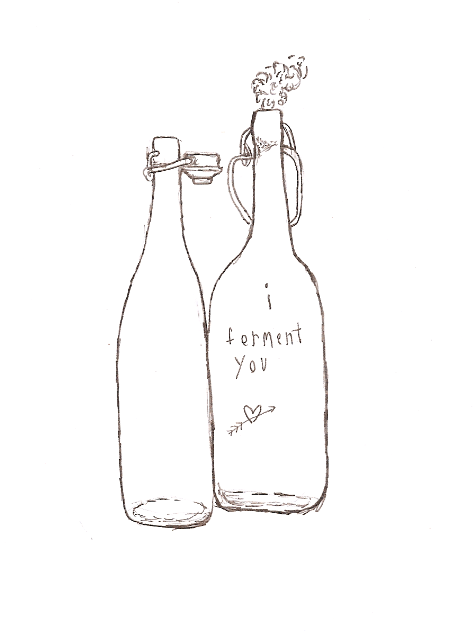 i
ferment
you